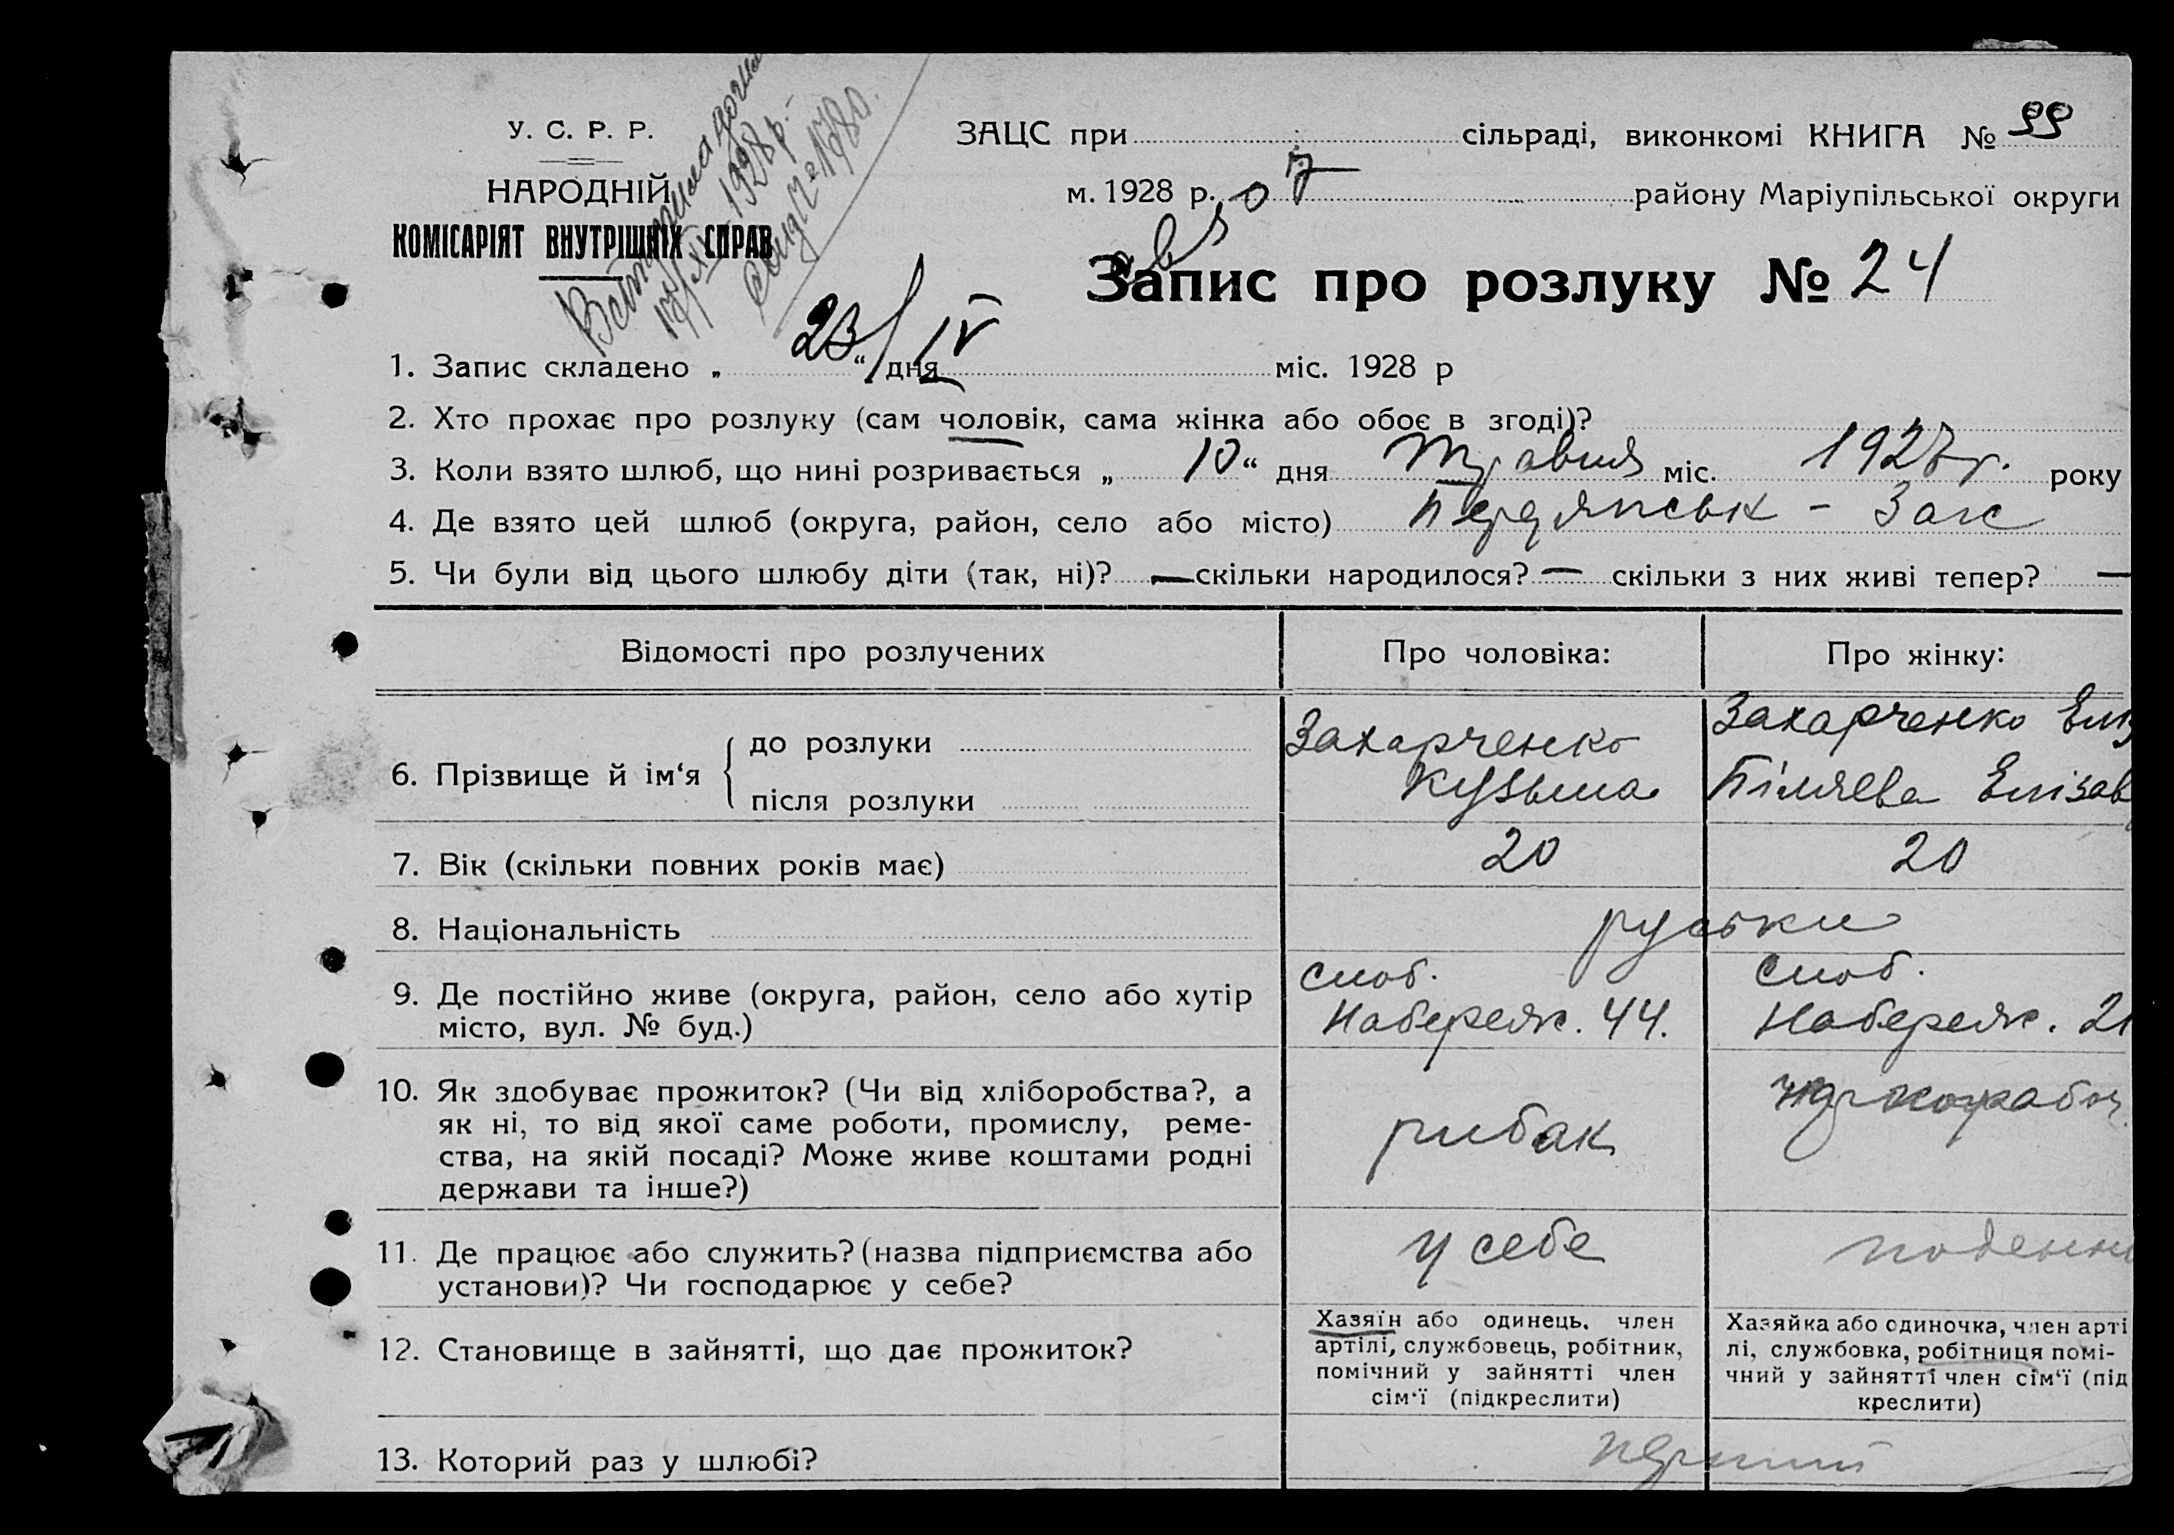 У. С. Р. Р.
НАРОДНІЙ
КОМІСАРІЯТ ВНУТРІШНІХ СПРАВ
17/XI 1928 р.
ЗАЦС при сільраді, виконкомі КНИГА № 99
м. 1928 р. району Маріупільської округи
Запис про розлуку № 24
1. Запис складено „ 23 “ дня IV міс. 1928 р
2. Хто прохає про розлуку (сам чоловік, сама жінка або обоє в згоді)?
3. Коли взято шлюб, що нині розривається „ 10 “ дня травня міс. 1927 р. року
4. Де взято цей шлюб (округа, район, село або місто) Бердянськ - Загс
5. Чи були від цього шлюбу діти (так, ні)? — скільки народилося? — скільки з них живі тепер? —
Відомості про розлучених Про чоловіка: Про жінку:
6. Прізвище й ім‘я до розлуки Захарченко Захарченко Еліз
після розлуки Кузьма Біляєва Елізав
7. Вік (скільки повних років має) 20 20
8. Національність руськи
9. Де постійно живе (округа, район, село або хутір слоб. слоб.
місто, вул. № буд.) Набереж. 44. Набереж. 21
10. Як здобуває прожиток? (Чи від хліборобства?, а
як ні, то від якої саме роботи, промислу, реме-
ства, на якій посаді? Може живе коштами родні
держави та інше?) рибак
11. Де працює або служить? (назва підприємства або
установи)? Чи господарює у себе? у себе поденно
12. Становище в зайнятті, що дає прожиток?
Хазяїн або одинець. член
артілі, службовець, робітник,
помічний у зайнятті член
сім‘ї (підкреслити)
Хазяйка або одиночка, член арті
лі, службовка, робітниця помі-
чний у зайнятті член сім‘ї (під
креслити)
13. Которий раз у шлюбі? перший